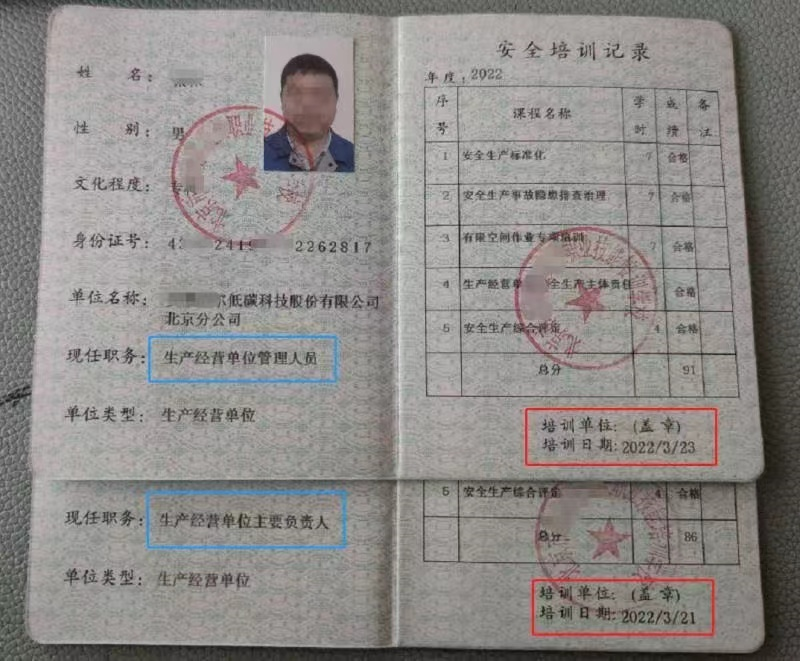 姓 名：
性 别：男
文化程度：专
身份证号：4 2419 2262817
单位名称： 低碳科技股份有限公司
北京分公司
现任职务：生产经营单位管理人员
单位类型：生产经营单位
安全培训记录
年度：2022
序号 课程名称 学时 成绩 备注
1 安全生产标准化 7 合格
2 安全生产事故隐患排查治理 7 合格
3 有限空间作业专项培训 7 合格
4 生产经营单 全生产主体责任 合格
5 安全生产综合评定 4 合格
总分 91
培训单位：(盖章)
培训日期：2022/3/23
现任职务：生产经营单位主要负责人
单位类型：生产经营单位
5 安全生产综合评定 4 合格
总分 86
培训单位：(盖章)
培训日期：2022/3/21